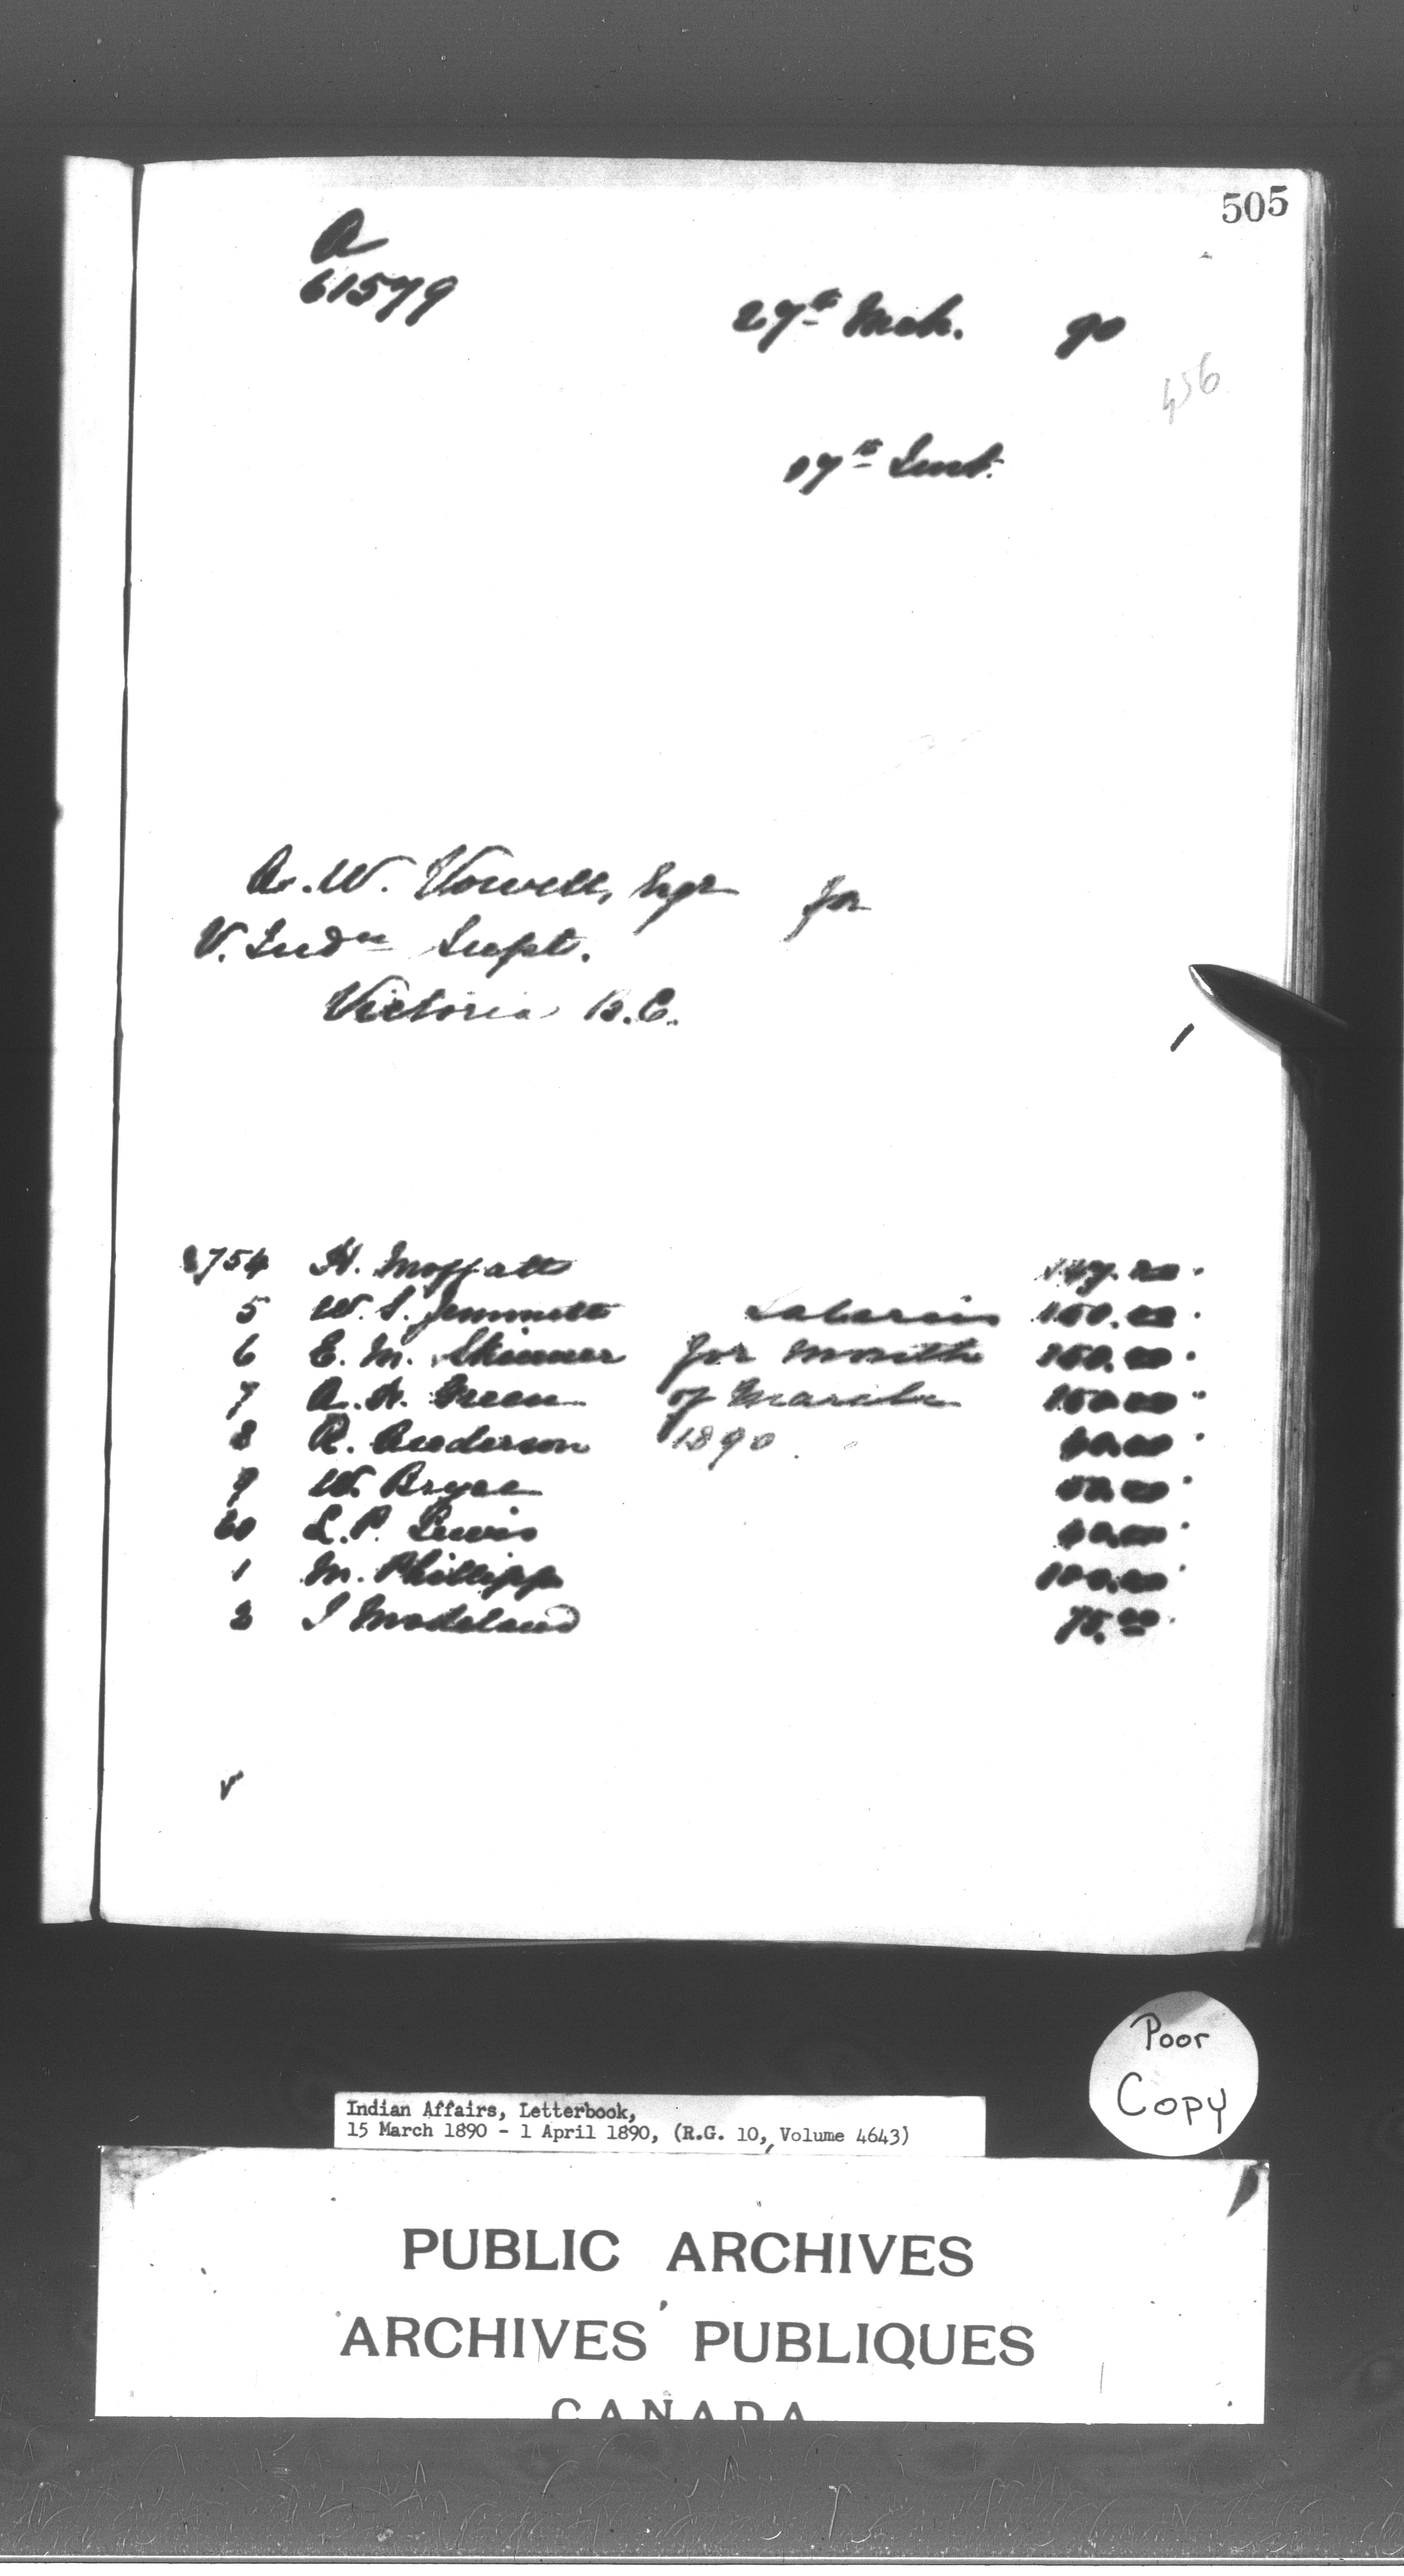 505
A
61579
27th Mch. 90
456
17th Inst.
A. W. Vowell, Esqr for
V. Indn Supt.
Victoria B.C.
2754 H. Moffatt 147.20
5 W. S. Jemmett Salaries 150.00
6 E. M. Skinner for month 150.00
7 A. H. Green of March 150.00
8 R. Anderson 1890 60.00
9 W. Bryce 50.00
60 L. P. Lewis 40.00
1 M. Phillipps 100.00
2 I Modeland 75.00
Poor
Copy
Indian Affairs, Letterbook,
15 March 1890 - 1 April 1890, (R.G. 10, Volume 4643)
PUBLIC ARCHIVES
ARCHIVES PUBLIQUES
CANADA